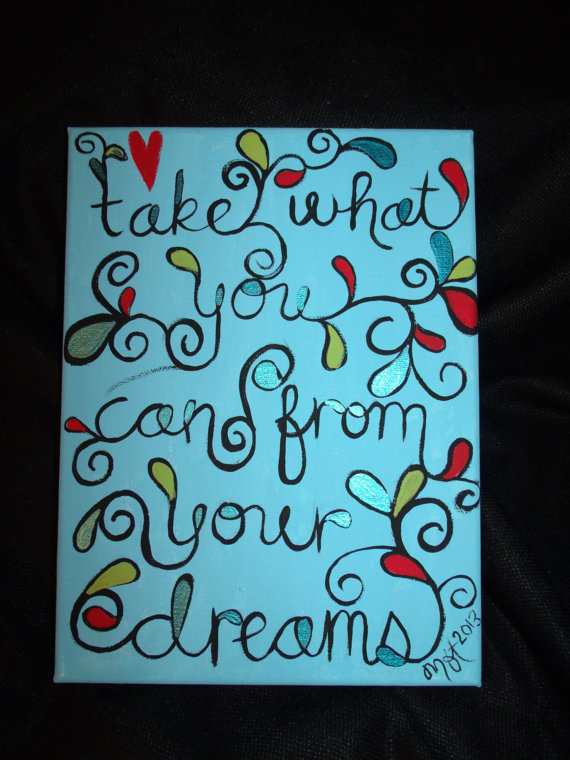 take what
you
can from
your
dreams
2013